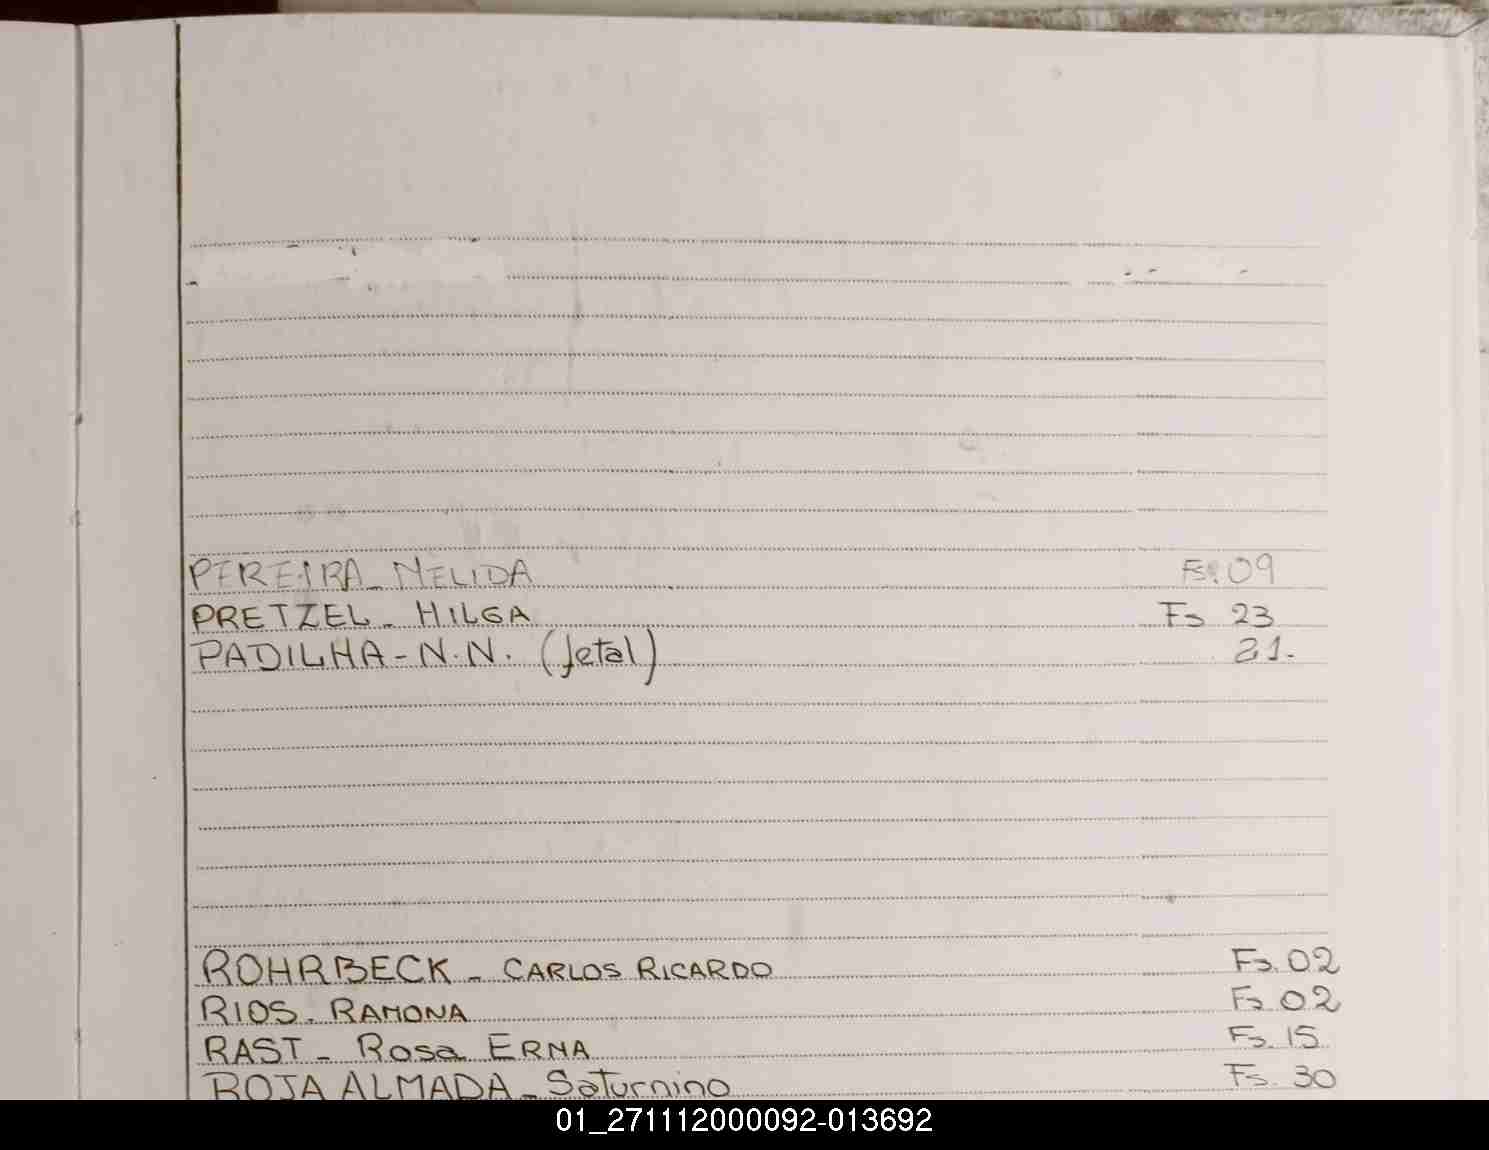 PEREIRA_NELIDA Fs. 09
PRETZEL_HILGA Fs 23
PADILHA-N.N. (fetal) 21.-
ROHRBECK - CARLOS RICARDO Fs. 02
RIOS. RAMONA Fs 02
RAST - Rosa ERNA Fs. 15
ROJA ALMADA - Saturnino Fs. 30
01_271112000092-013692